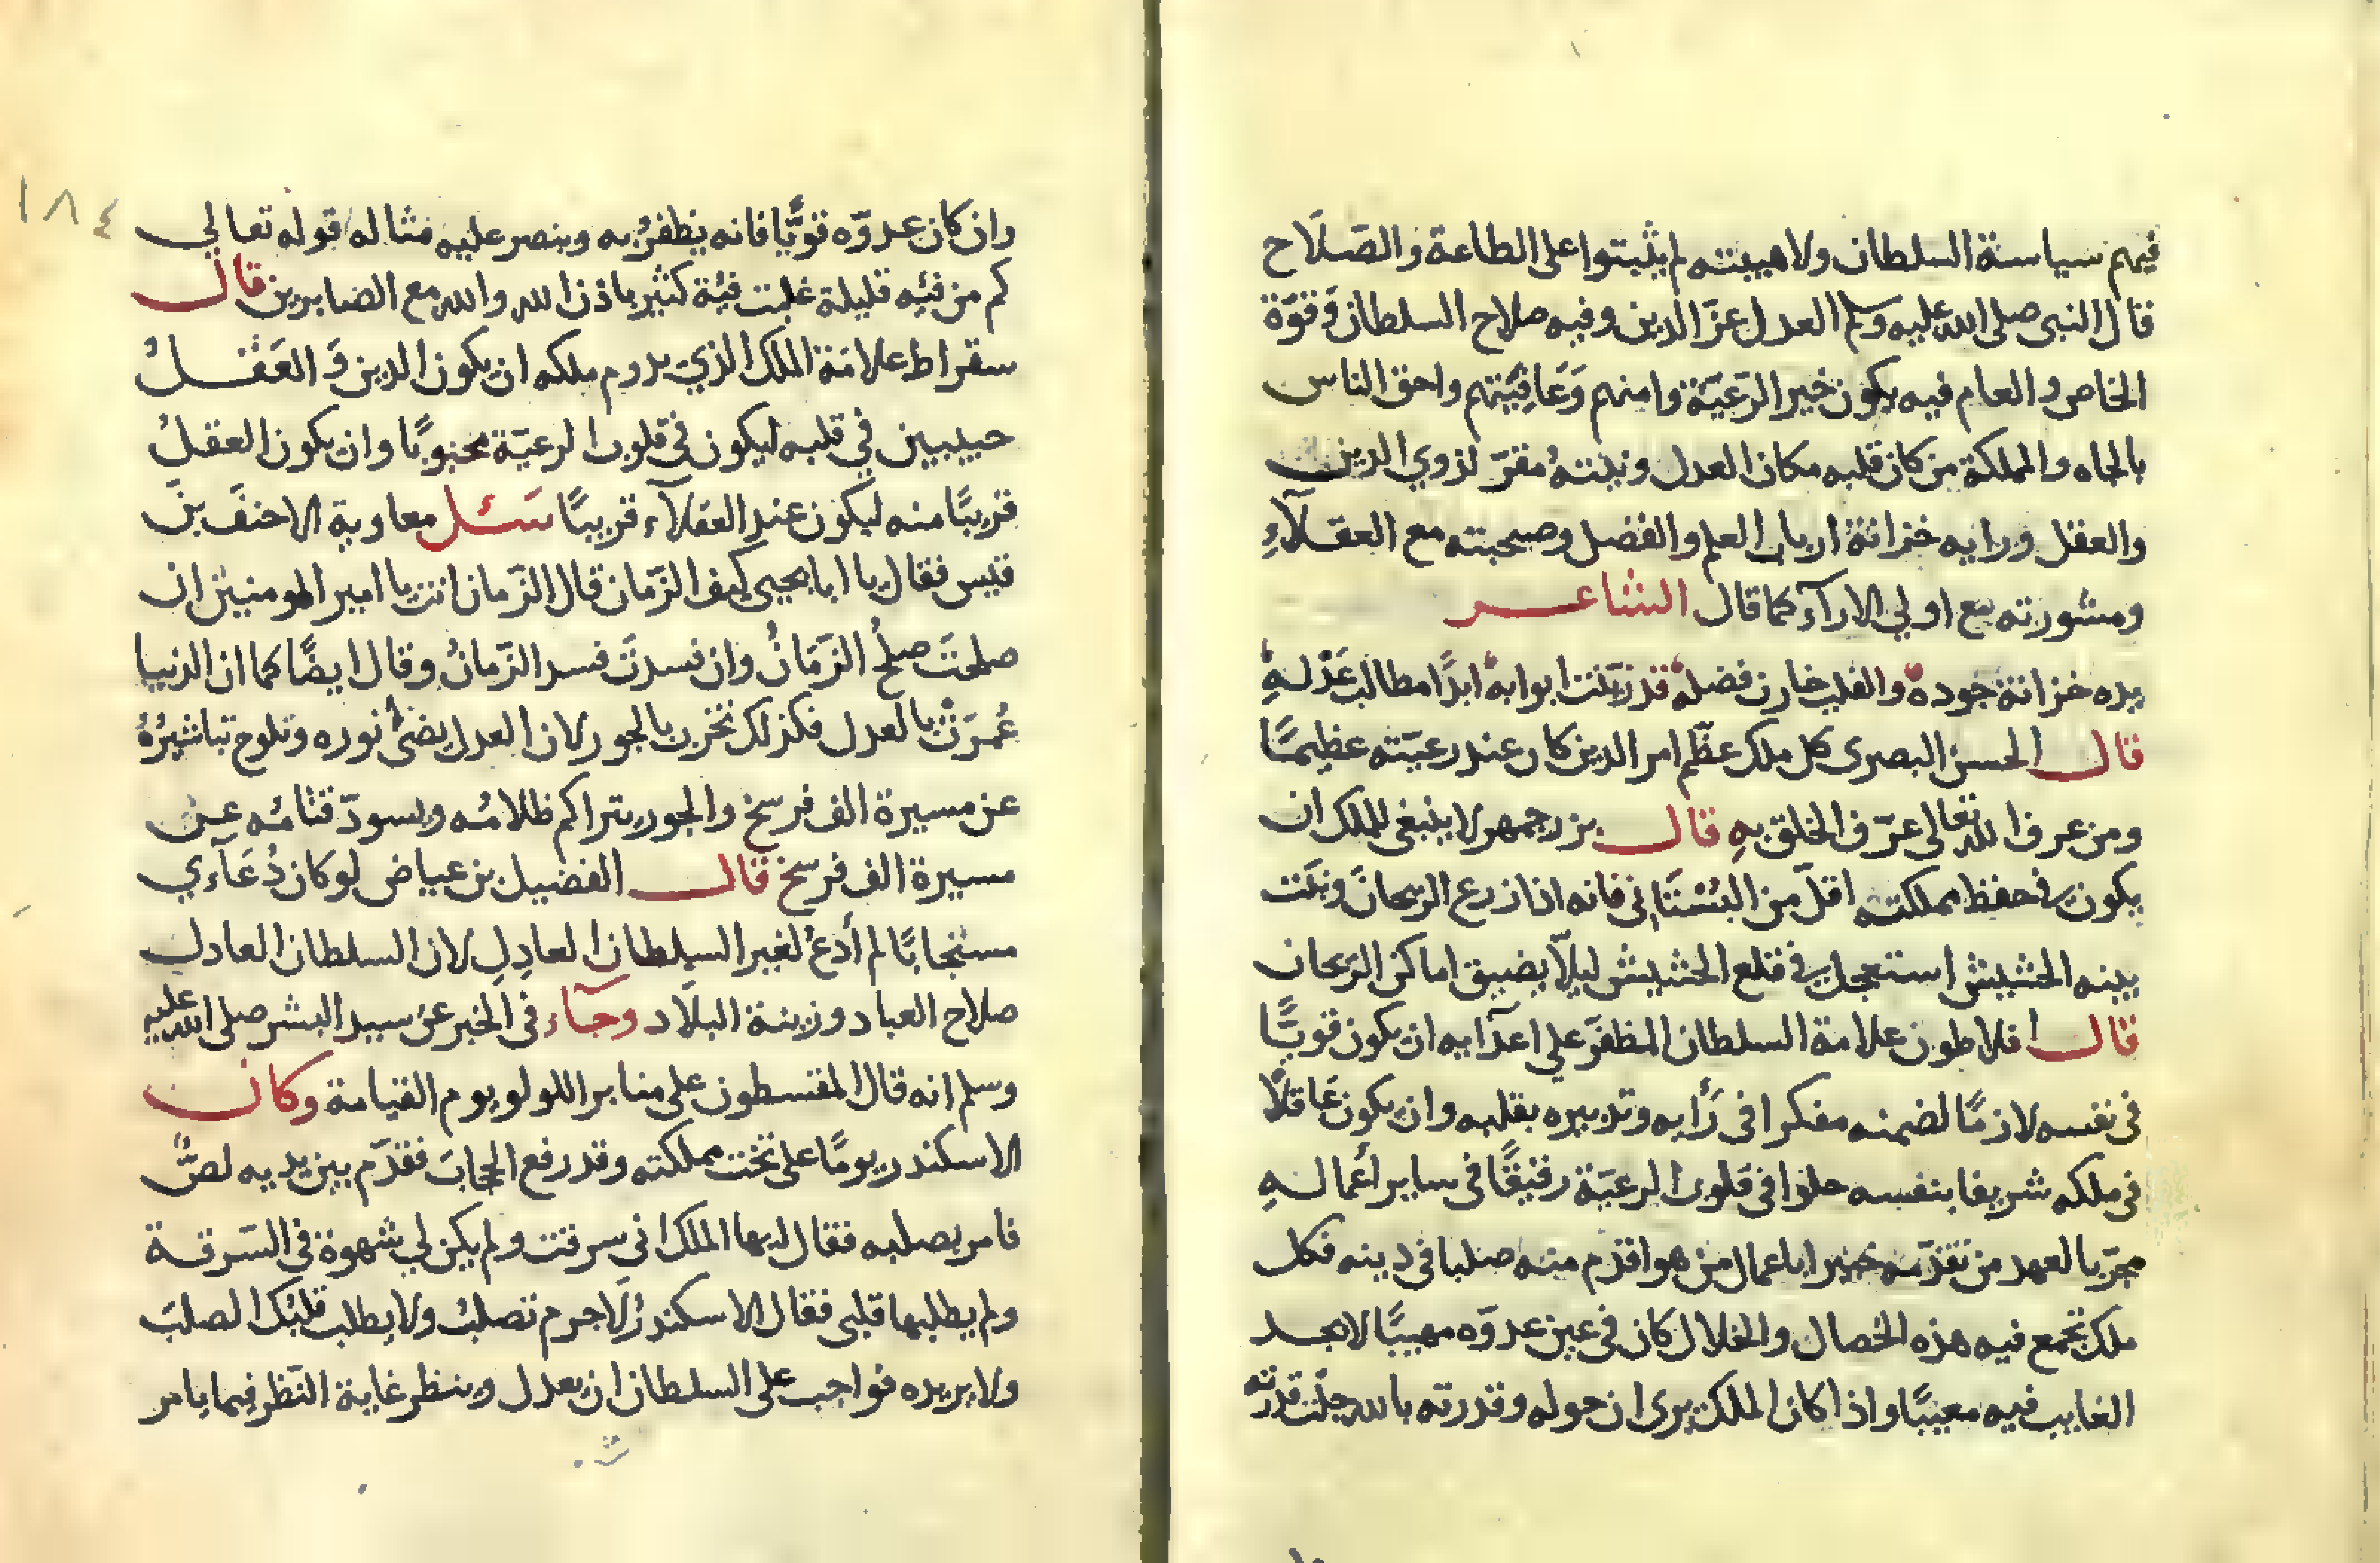 فيهم سياسة السلطان ولاهيبته لم يثبتوا على الطاعة والصَلَاح
قال النبى صلى الله عليه وسلم العدل عزّ الدين وفيه صلاح السلطان وَقوّة
الخاص والعام فيه يكون خير الرّعيّة وامنهم وَعَافِيَتهم واحق الناس
بالجاه والمملكة من كان قلبه مكان العدل وبيته مقرّ لذوي الدين
والعقل ورايه خزانة ارباب العلم والفضل وصحبته مع العقلآءِ
ومشورته مع اولي الارآء كما قال الشاعر
يده خزانة جوده والقلب خازن فضله قد زينت ابوابه ابدًا مطالب عَدْلهِ
قال الحسن البصرى كل ملك عظّم امر الدين كان عند رعيّته عظيمًا
ومن عرف الله تعالى عرّف الخلق بهِ قال بزرجمهر لا ينبغى للملك ان
يكون فى حفظ مملكته اقلّ من البُسْتَانى فانه اذا زرع الريحانَ ونبَت
بينه الحشيش استعجل فى قلع الحشيش ليلّا يضيق اماكن الرّيحان
قال افلاطون علامة السلطان المظفّر علي اعدآيه ان يكون قويًّا
فى نفسه لازمًا لضمنه مفكرا فى رَأيه وتدبيره بقلبه وان يكون عَاقلًا
فى ملكه شريفا بنفسه حلوا فى قلوب الرعيّة رفيقًا فى ساير أعمالهِ
مجرّبا لعهد من تقدّمه خبيرا باعمال من هو اقدم منه صلبا فى دينه فكل
ملك تجمع فيه هذه الخصال والخلال كان فى عين عدوّه مهيبًا لا يجد
الغايب فيه معيبًا واذا كان الملك يرى ان حوله وقدرته بالله جلّت قدرته
١٨٤
وان كان عدوّه قويًّا فانه يظفرُ به وينصر عليه مثاله قوله تعالي
كم من فيه قليلة غلبت فئة كثير باذن الله والله مع الصابرين قال
سقراط علامَة الملك الذي يدوم ملكه ان يكون الدين وَ العَقلُ
حبيبين في قلبه ليكون فى قلوب الرعيّة محبوبًا وان يكون العقلُ
قريبًا منه ليكون عند العقلآء قريبًا سَئل معاوية الاحنفَ بن
قيس فقال يا ابا يحيى كيف الزّمان قال الزّمان انت يا امير المومنين ان
صلحتَ صلحُ الزَمَانُ وان فسدتَ فسد الزّمانُ وقال ايضًا كما ان الدنيا
عُمرَتْ بالعدل فكذلك تخرب بالجور لان العدل يضئُ نوره وتلوح تباشيرُهُ
عن مسيرة الف فرسخ والجور يتراكم ظلامُه ويسودّ قتامُه عن
مسيرة الف فرسخ قال الفضيل بن عياض لو كان دُعَآءي
مستجابًا لم أدعُ لغير السلطان العادِلِ لان السلطان العادل
صلاح العباد وزينة البلَاد وجآء فى الخبر عن سيد البشر صلى الله عليه
وسلم انه قال المقسطون على منابر اللولو يوم القيامة وكان
الاسكندر يومًا على تخت مملكته وقد رفع الحجابَ فقدّم بين يديه لصٌّ
فامر بصلبه فقال ايها الملك انى سرقت ولم يكن لي شهوة فى السَرقة
ولم يطلبها قلبى فقال الاسكندرُ لَاجرم تصلبُ ولا يطلب قلبُك الصلبَ
ولا يريده فواجب على السلطان ان يعدل وينظر غاية النّظر فيما يامر